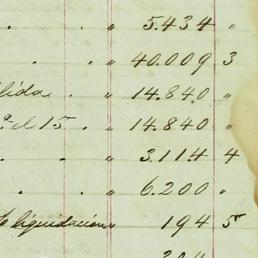 . " 5.434 "
. . " 40.009 3
lida. " 14.840 "
el 15 . " 14.840 "
. . " 3.114 4
. " 6.200 "
liquidacion " 194 5